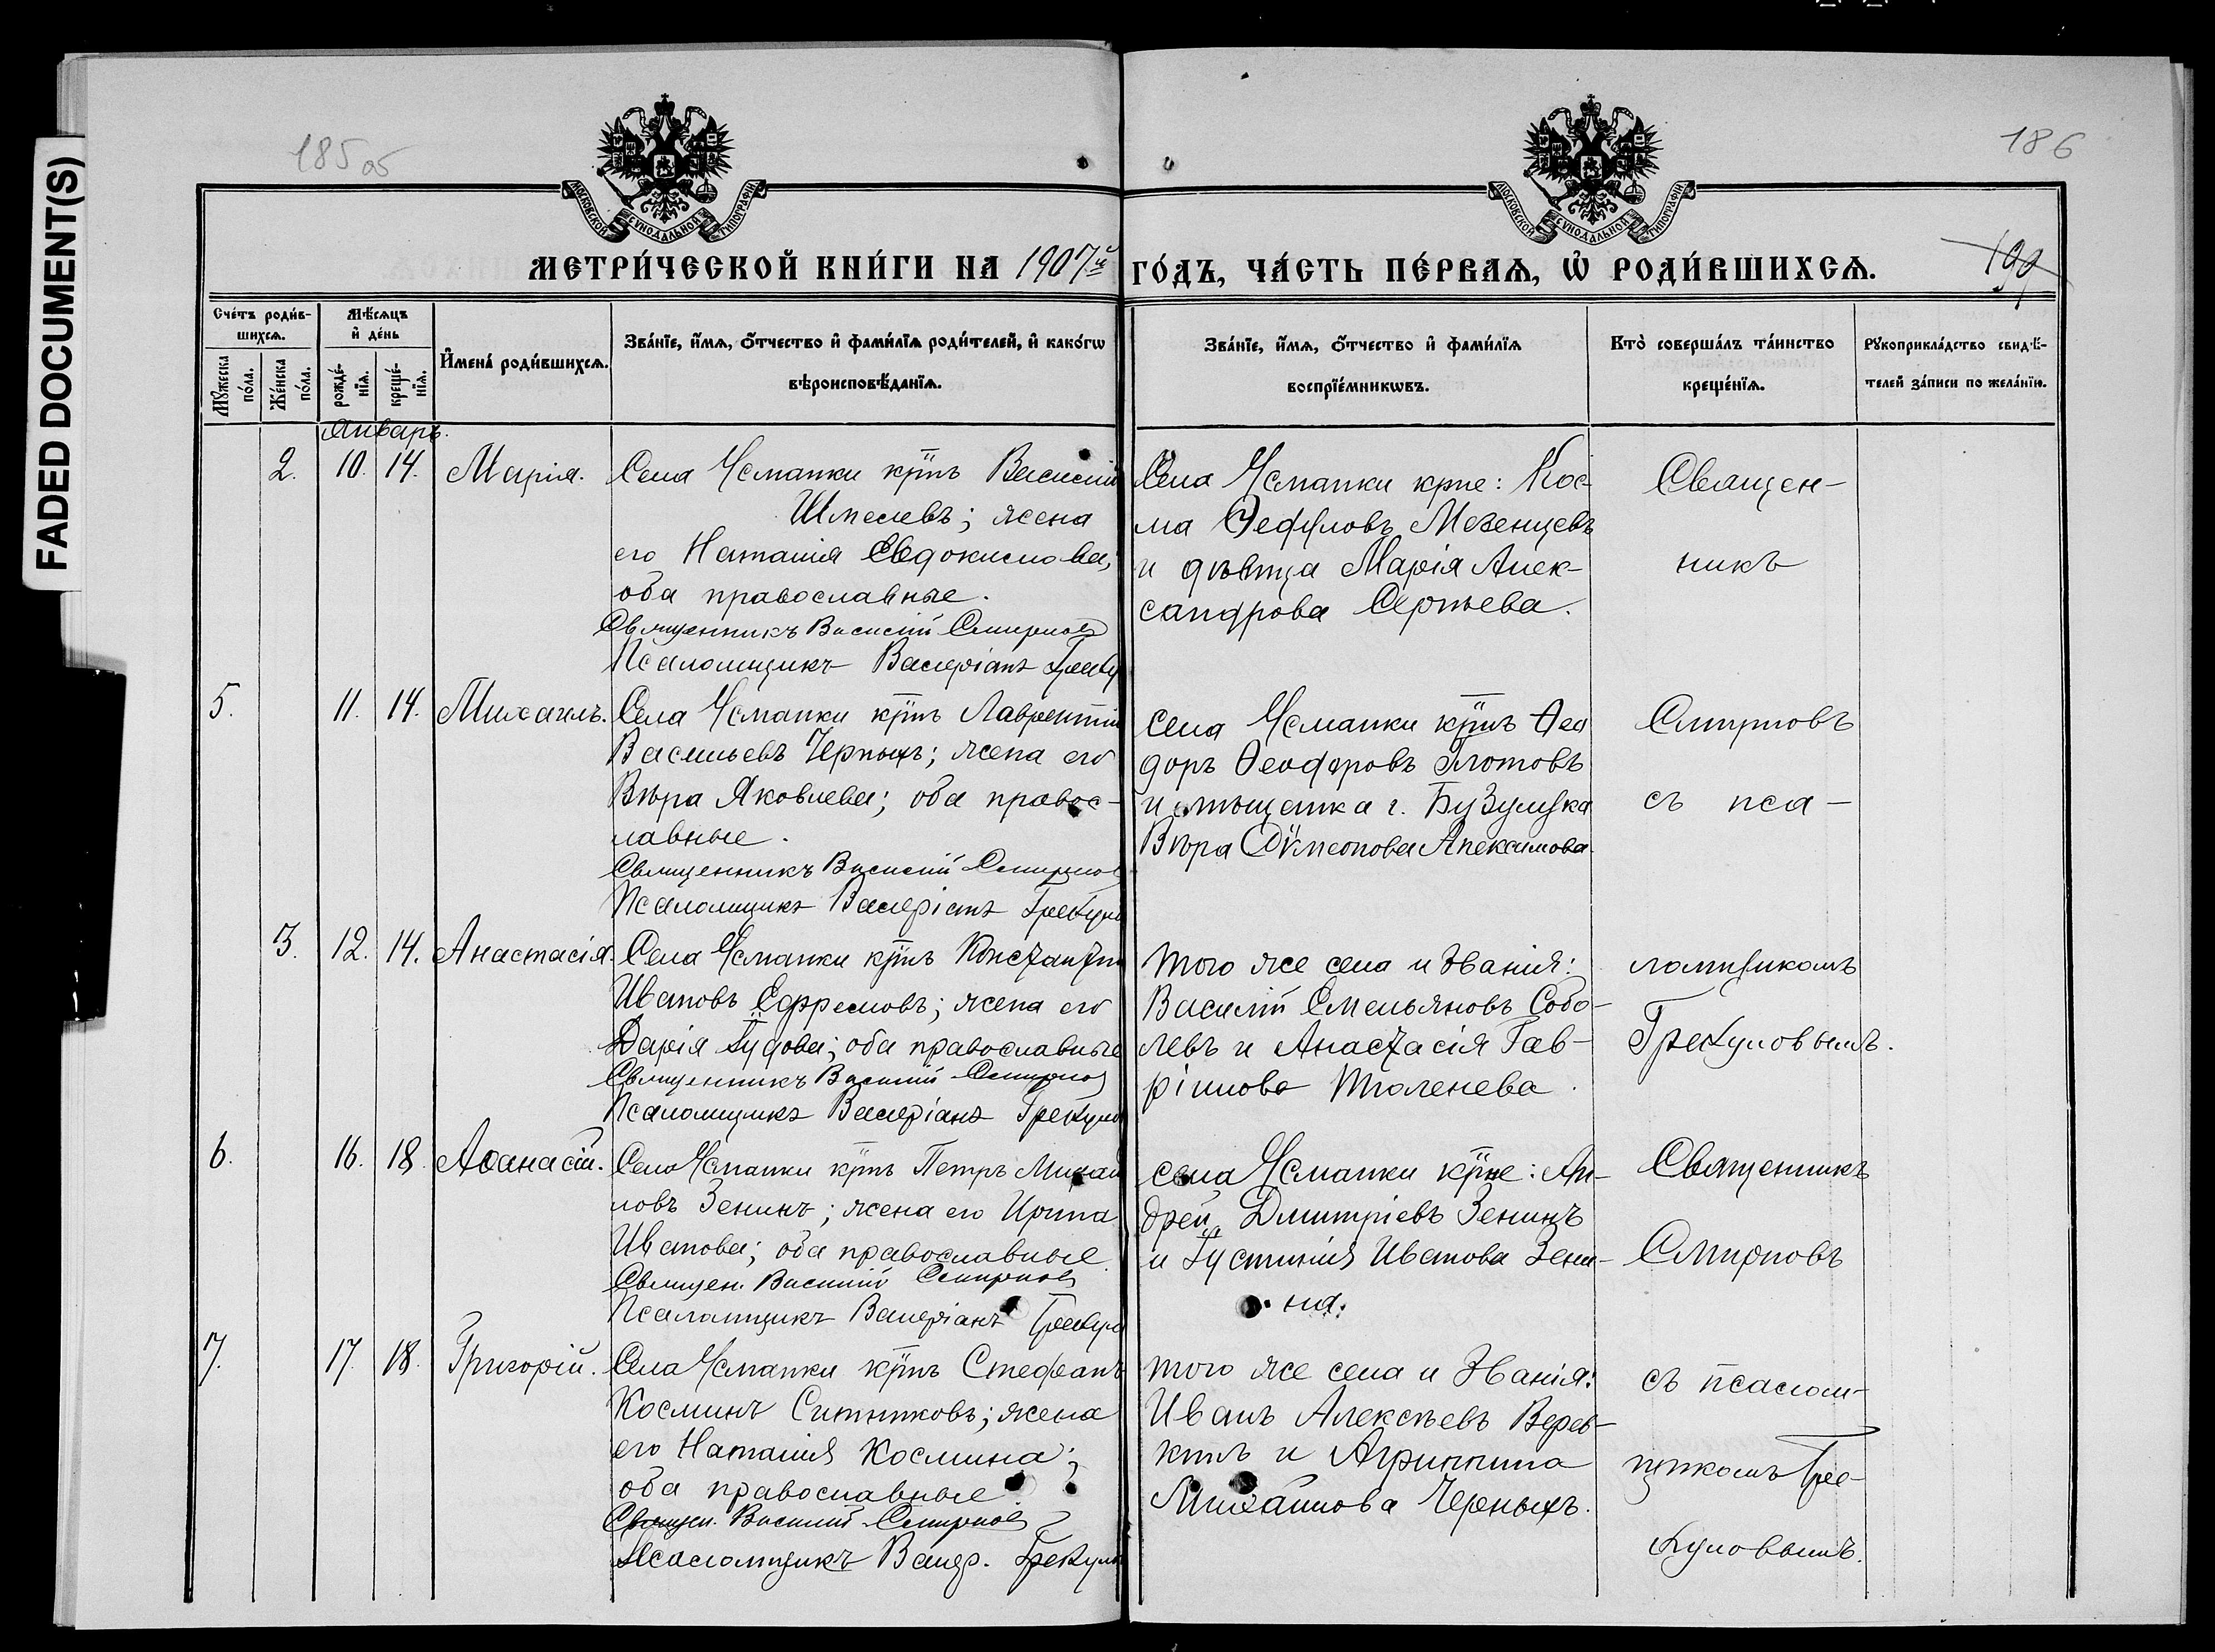 FADED DOCUMENT(S)
185об
186
МОСКОВСКОЙ СѴНОДАЛЬНОЙ ТИПОГРАФІИ
МОСКОВСКОЙ СѴНОДАЛЬНОЙ ТИПОГРАФІИ
МЕТРИ́ЧЕСКОЙ КНИ́ГИ НА 1907й
ГО́ДЪ, ЧА́СТЬ ПЕ́РВАѦ, Ѡ҆ РОДИ́ВШИХСѦ.
199
Сче́тъ роди́в-
шихсѧ.
Мꙋ́жеска
по́ла.
Же́нска
по́ла.
Мѣ́сѧцъ
и҆ де́нь
рожде́-
нїѧ.
креще́-
нїѧ.
И҆мена̀ роди́вшихсѧ.
Зва́нїе, и҆́мѧ, ѻ҆́тчество и҆ фами́лїѧ роди́телей, и҆ како́гѡ
вѣроисповѣ́данїѧ.
Зва́нїе, и҆́мѧ, ѻ҆́тчество и҆ фами́лїѧ
воспрїе́мникѡвъ.
Кто̀ соверша́лъ та́инство
креще́нїѧ.
Рꙋкоприкла́дство свидѣ́-
телей за́писи по жела́нїю.
Январь.
2. 10. 14. Марія.
Села Усманки крнъ Василій
Шмелевъ; жена
его Наталія Евдокимова,
оба православные.
Священникъ Василій Смирнов
Псаломщикъ Валеріанъ Грекул
Села Усманки крне: Кос-
ма Мезенцевъ
и дѣвица Марія Алек-
сандрова Сергѣева.
Священ-
никъ
5. 11. 14. Михаилъ.
Села Усманки крнъ Лаврентій
Васильевъ Черныхъ; жена его
Вѣра Яковлева; оба правос-
лавные.
Священникъ Василій Смирнов
Псаломщикъ Валеріанъ Грекуло
села Усманки крнъ Ѳео
доръ Ѳеодоровъ Глотовъ
и мѣщанка г. Бузулука
Вѣра Сѵмеонова Алексимова.
Смирновъ
съ пса-
3. 12. 14. Анастасія.
Села Усманки крнъ Константин
Ивановъ Ефремовъ; жена его
Дарія Іудова; оба православные
Священникъ Василій Смирнов
Псаломщикъ Валеріанъ Грекуло
того же села и званія:
Василій Емельяновъ Собо-
левъ и Анастасія Гав-
ріилова Тюленева.
ломщикомъ
Грекуловымъ.
6. 16. 18. Аѳанасій.
Села Усманки крнъ Петръ Михаи
ловъ Зенинъ; жена его Ирина
Иванова; оба православные.
Священ. Василій Смирнов
Псаломщикъ Валеріанъ Грекул
села Усманки крне: Ан-
дрей Димитріевъ Зенинъ
и Іустинія Иванова Зени-
на.
Священникъ
Смирновъ
7. 17. 18. Григорій.
Села Усманки крнъ Стефанъ
Косминъ Ситниковъ; жена
его Наталія Космина;
оба православные.
Священ. Василій Смирнов
Псаломщикъ Валер. Грекуло
того же села и званія:
Иванъ Алексѣевъ Верев-
кинъ и Агриппина
Михаилова Черныхъ.
съ псалом-
щикомъ Гре-
куловымъ.